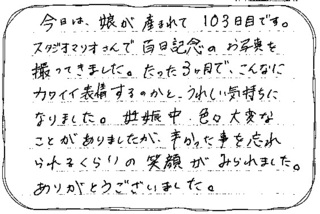 今日は、娘が産まれて103日目です。
スタジオマリオさんで百日記念のお写真を
撮ってきました。たった3ヶ月で、こんなに
カワイイ表情するのかと、うれしい気持ちに
なりました。妊娠中、色々大変な
ことがありましたが、辛かった事を忘れ
られるくらいの笑顔がみられました。
ありがとうございました。